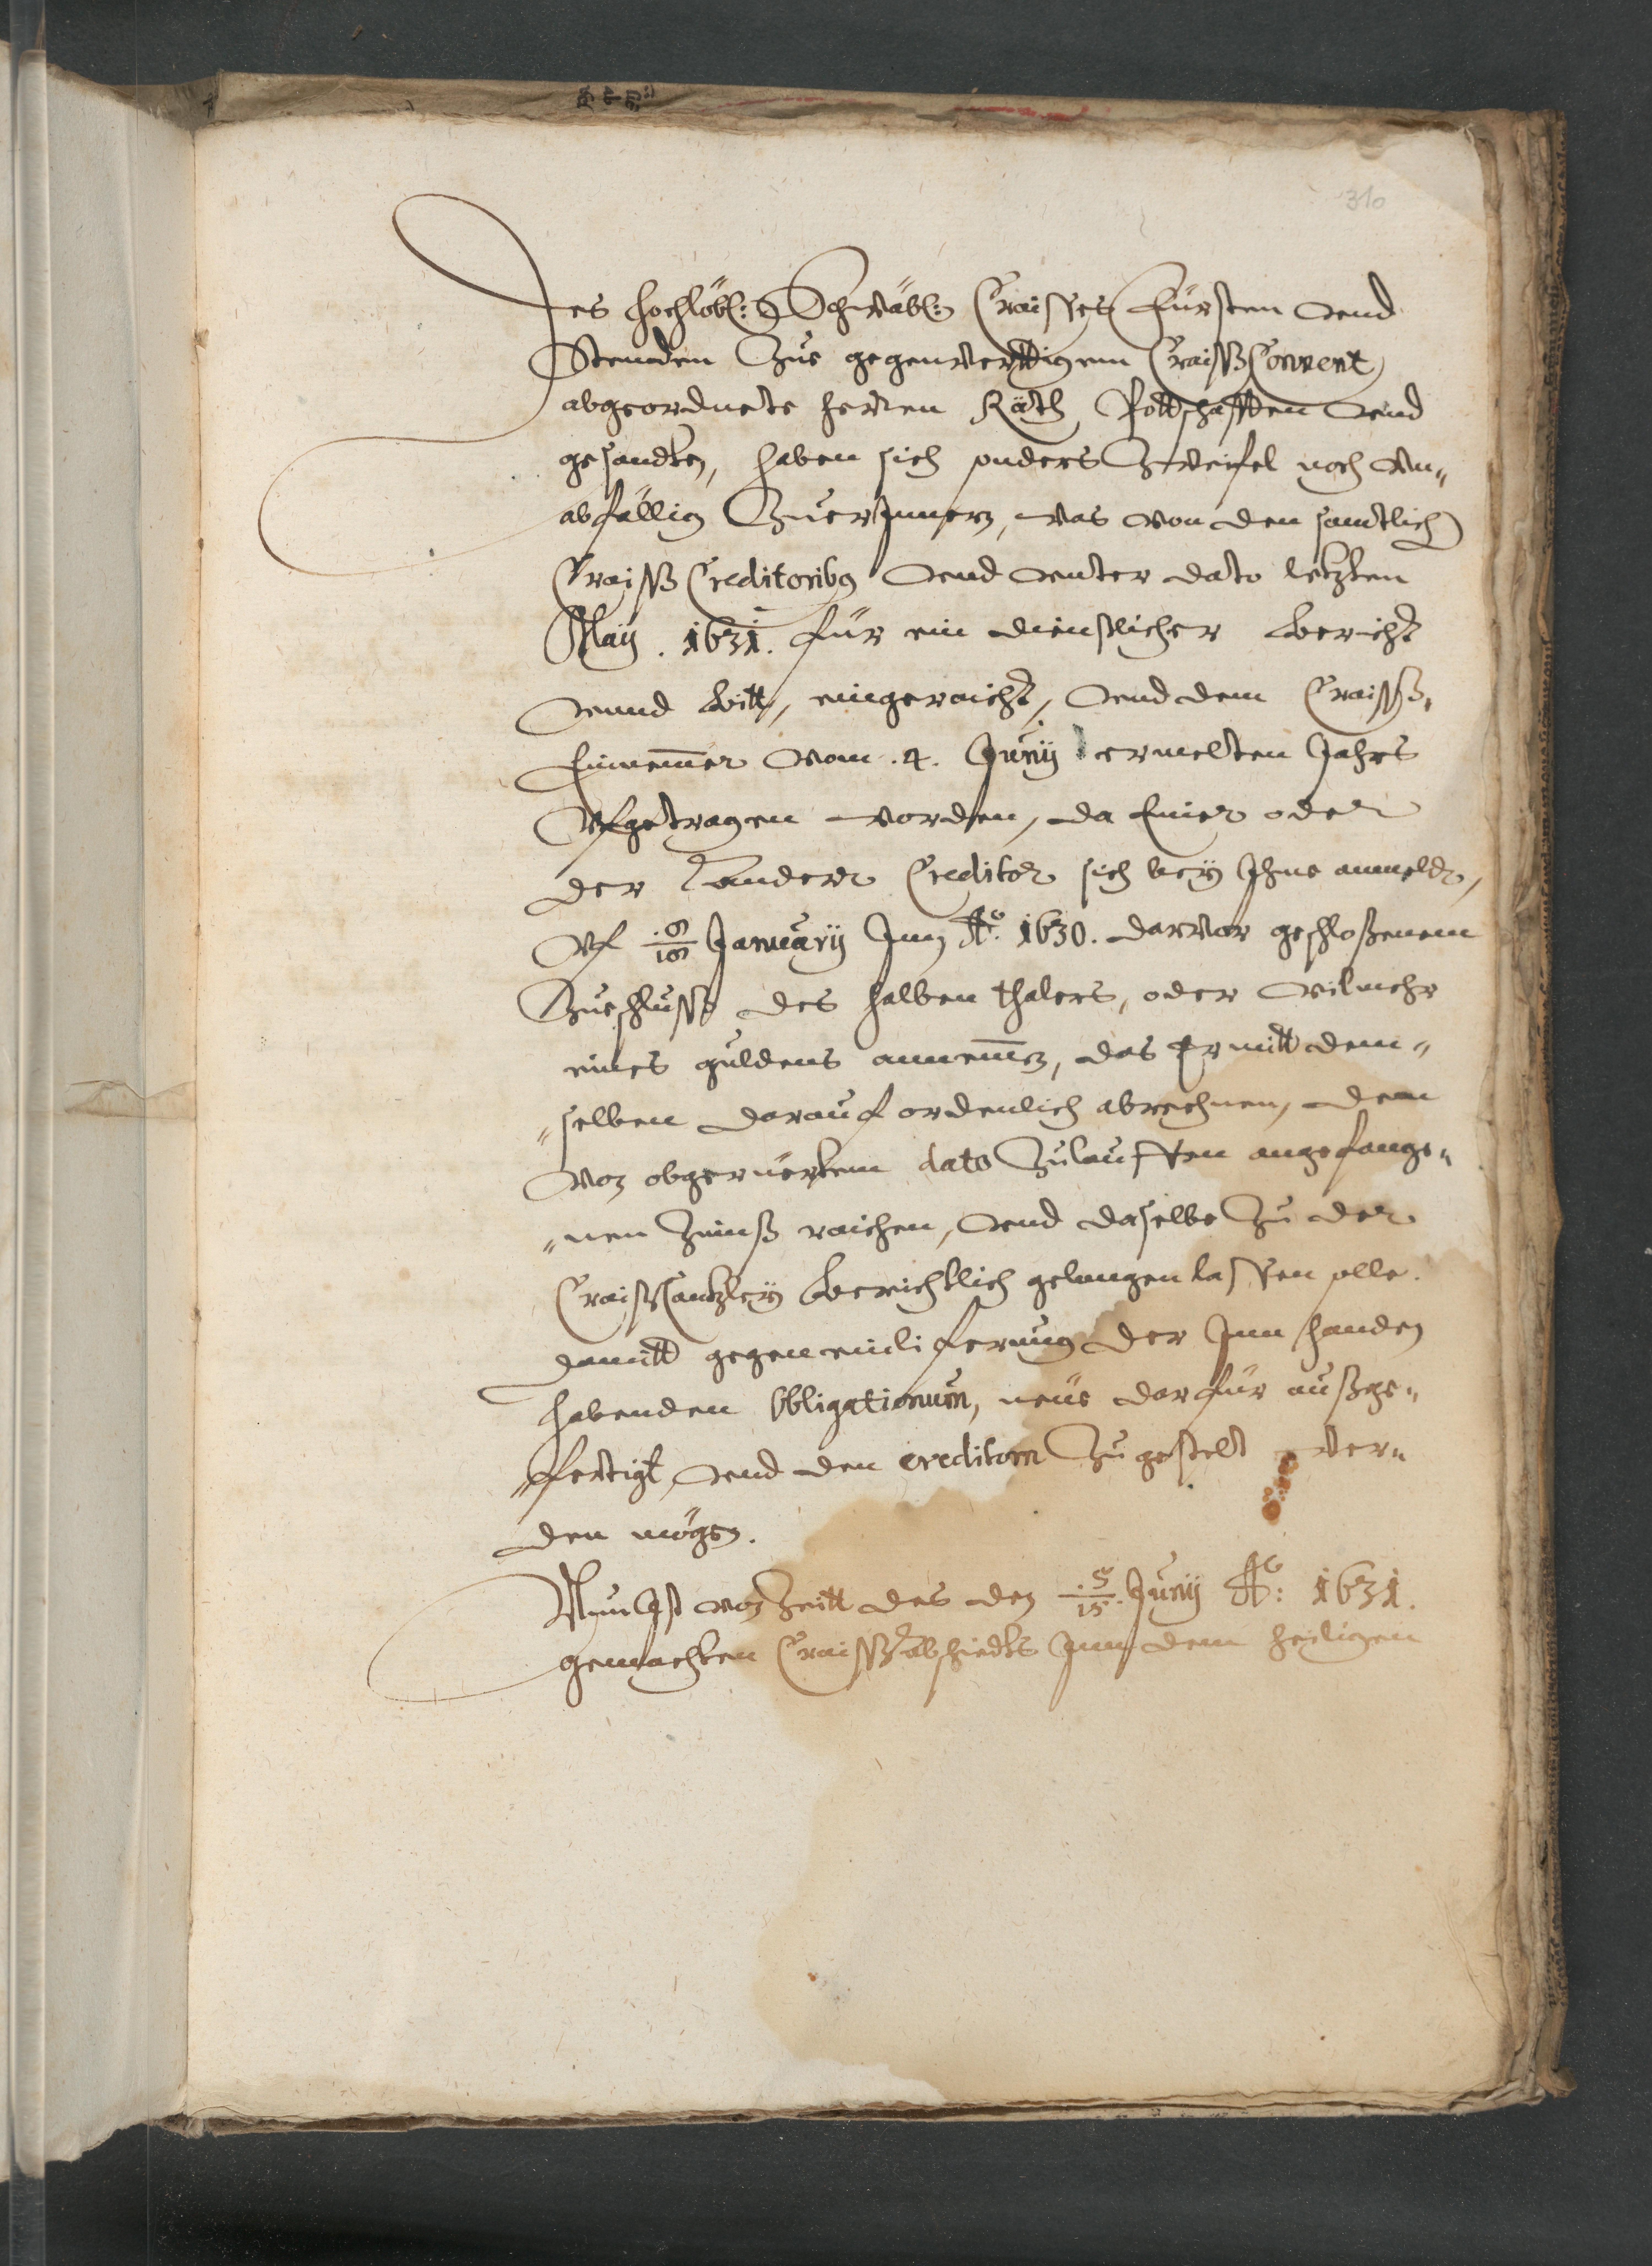 310
Des hochlöbl: Schwäbl: Craisses Fürsten vnd
Stenden Zue gegenwerttigem CraißConvent
abgeordnete herren Räth Pottschafften vnd
gesandten, haben sich sonders Zweifel noch vn„
abfällig ZuerJnnern, was von den samtlich
Craiß Creditoribus vnd vnter dato letzten
Maij . 1631. für ein dienstlicher Bericht
vnnd bitt, eingeraicht, vnd dem Craiß„
Einnemmer vom .4. Junij ermelten Jahrs
Vfgetragen worden, da Einer oder
der Ander Creditor sich bey Jhme anmelde,
Vf Januarij Jnn Ao. 1630. darvor geschloßenem
Zueschluß des halben thalers, oder vilmehr
eines guldens annemmen, das Er mitt dem„
„selben darauf ordenlich abrechnen, dem
von obgerüertem dato Zulauffen angefange„
„nen Zinnß raichen, vnd daselbe Zu der
CraißCantzley berichtlich gelangen lassen solle.
damitt gegen einliferung der Jnn handen
habenden Obligationum, neue darfür außge„
„fertigt, vnd den creditorn Zugestelt wer„
den mögen.
Nun Jst von Zeitt des den 5/15. Junij Ao: 1631.
gemachten Craißabschiedts Jnn dem heiligen